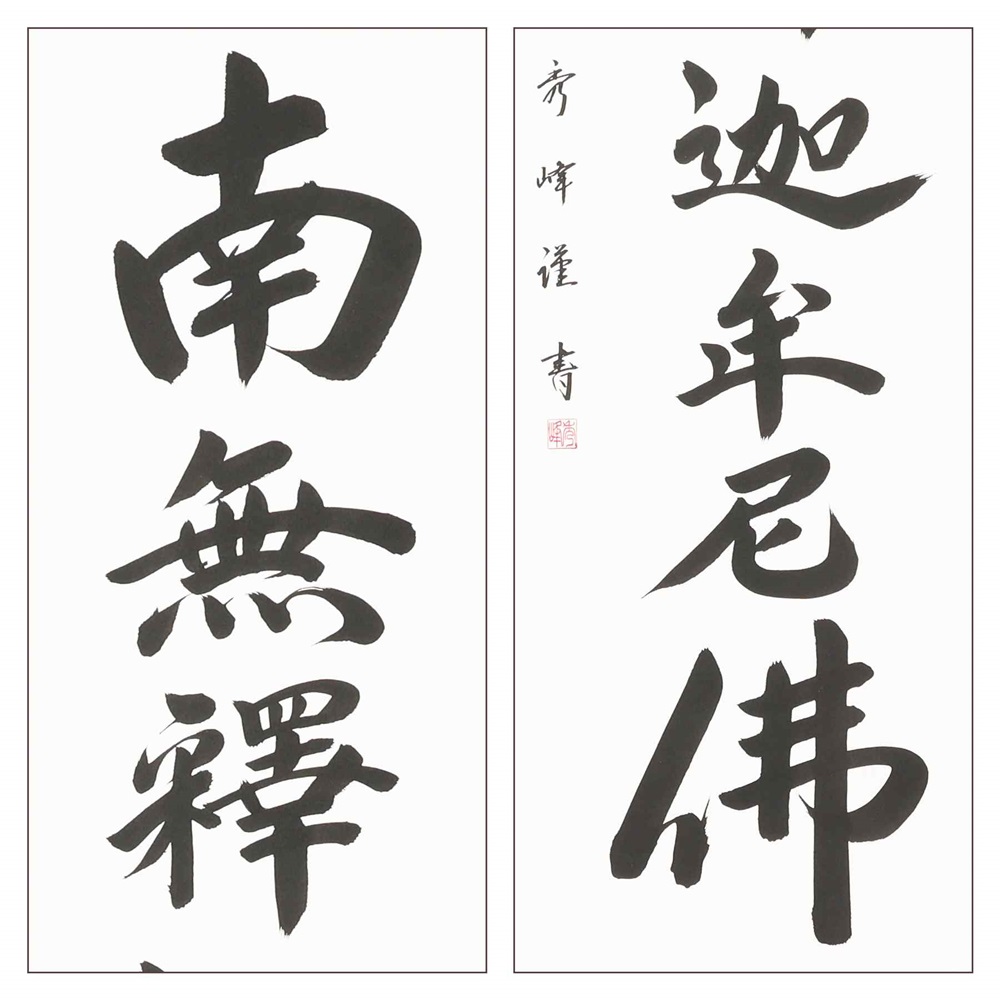 南無釋
迦牟尼佛
秀峰謹書
秀峰